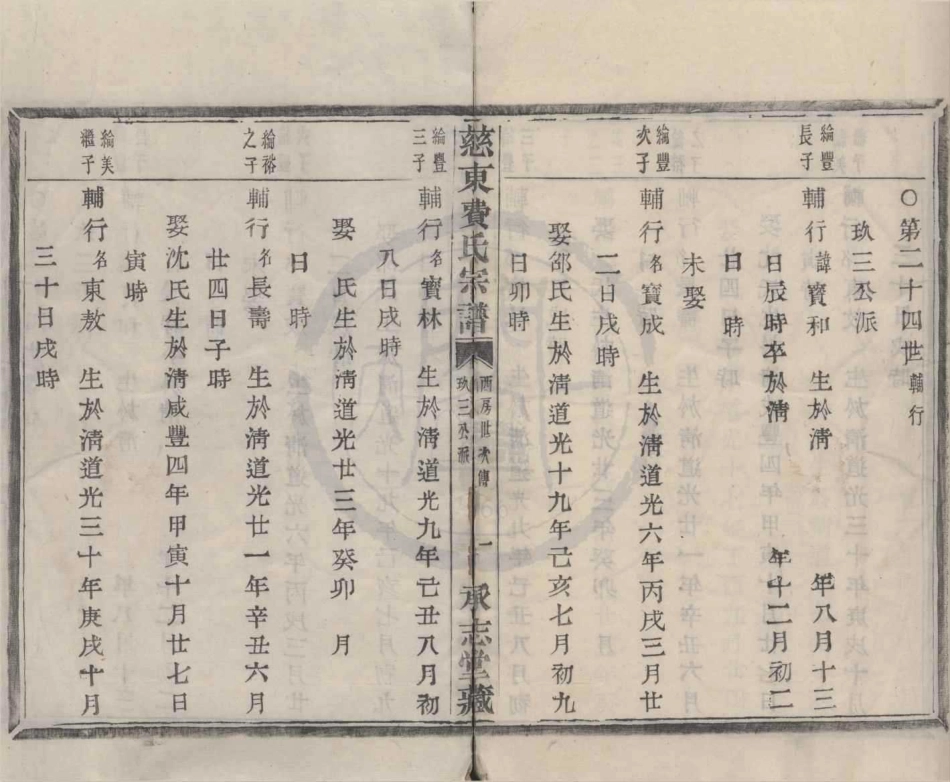 ○第二十四世輔行
玖三公派
綸豐
長子
輔行諱寶和 生於淸 年八月十三
日辰時卒於淸 年十二月初二
日 時
未娶
綸豐
次子
輔行名寶成 生於淸道光六年丙戌三月廿
二日戌時
娶邵氏生於淸道光十九年己亥七月初九
日卯時
慈東費氏宗譜
西房世次傳
玖三公派
一
承志堂藏
綸豐
三子
輔行名寶林 生於淸道光九年己丑八月初
八日戌時
娶 氏生於淸道光廿三年癸卯 月
日 時
綸裕
之子
輔行名長壽 生於淸道光廿一年辛丑六月
廿四日子時
娶沈氏生於淸咸豐四年甲寅十月廿七日
寅時
綸美
繼子
輔行名東敖 生於淸道光三十年庚戌十月
三十日戌時